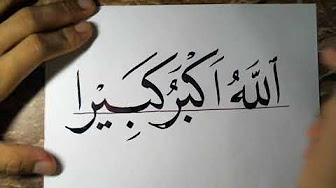 اَللَّهُ اَكْبَرُ كَبِيْرا